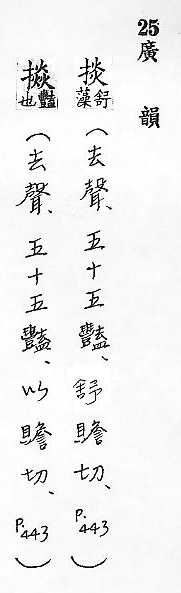 25廣韻
掞舒藻(去聲、五十五豔、舒贍切、P.443)
掞豔也(去聲、五十五豔、以贍切、P.443)